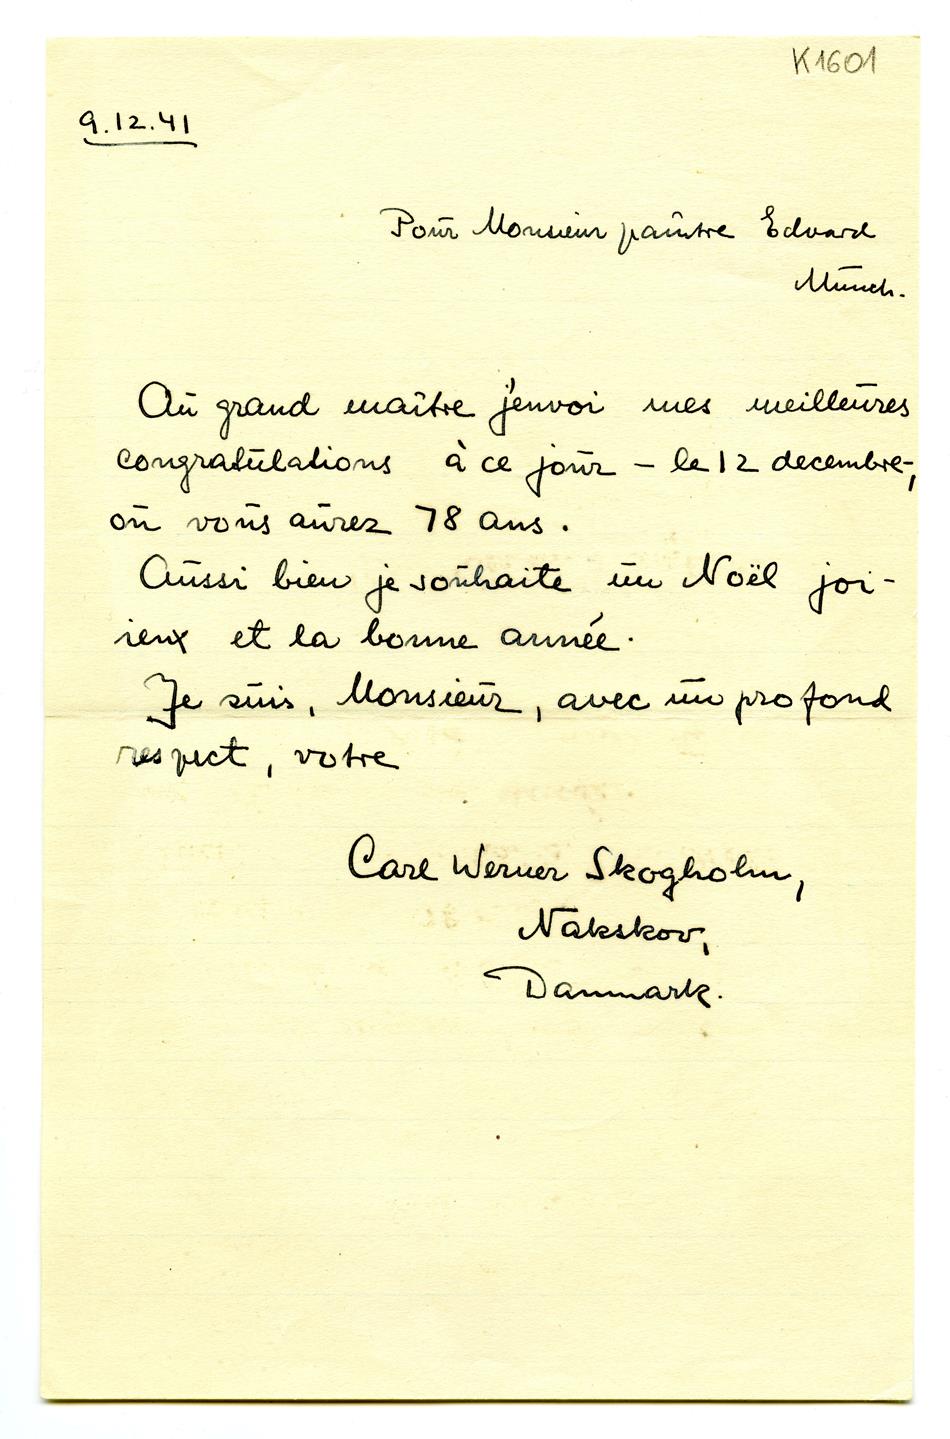 K1601
9.12.41
Pour Monsieur paintre Edvard
Munch.
Au grand maître j'envoi mes meilleures
congratulations à ce jour – le 12 decembre –,
où vous aurez 78 ans.
Aussi bien je souhaite un Noël joi-
ieux et la bonne année.
Je suis, Monsieur, avec un profond
respect, votre
Carl Werner Skogholm,
Nakskov,
Danmark.